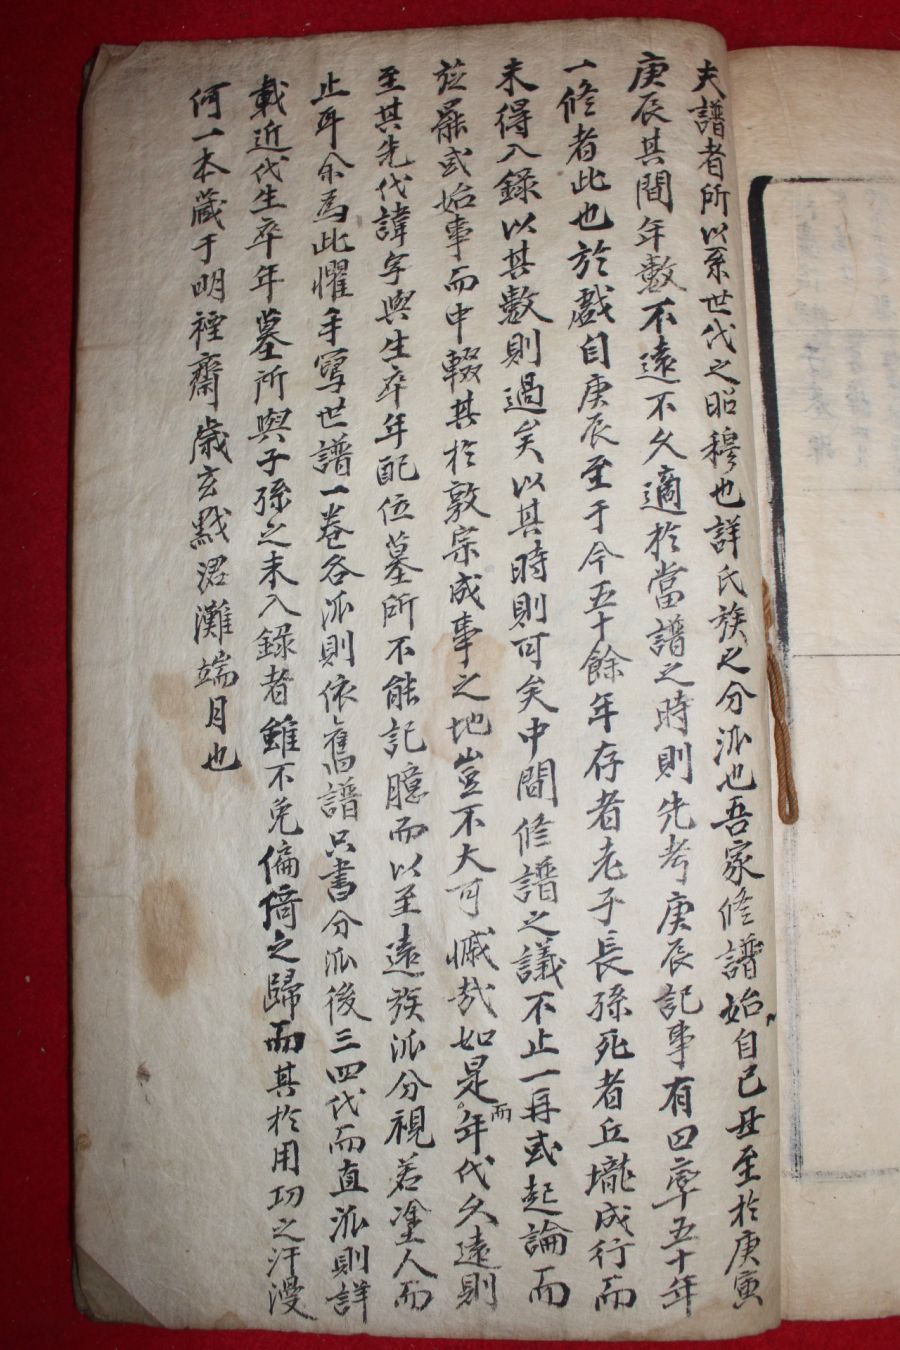 夫譜者所以系世代之昭穆也詳氏族之分派也吾家修譜始自己丑至於庚寅
庚辰其間年數不遠不久適於當譜之時則先考庚辰記事有四五十年
一修者此也於戲自庚辰至于今五十餘年存者老子長孫死者丘壠成行而
未得入錄以其數則過矣以其時則可矣中間修譜之議不止一再或起論而
旋罷或始事而中輟其於敦宗成事之地豈不大可慽哉如是而年代久遠則
至其先代諱字與生卒年配位墓所不能記臆而以至遠族派分視若塗人而
止耳余爲此懼手寫世譜一卷各派則依舊譜只書分派後三四代而直派則詳
載近代生卒年墓所與子孫之未入錄者雖不免偏倚之歸而其於用功之汗漫
何一本藏于明禋齋歲玄黓涒灘端月也